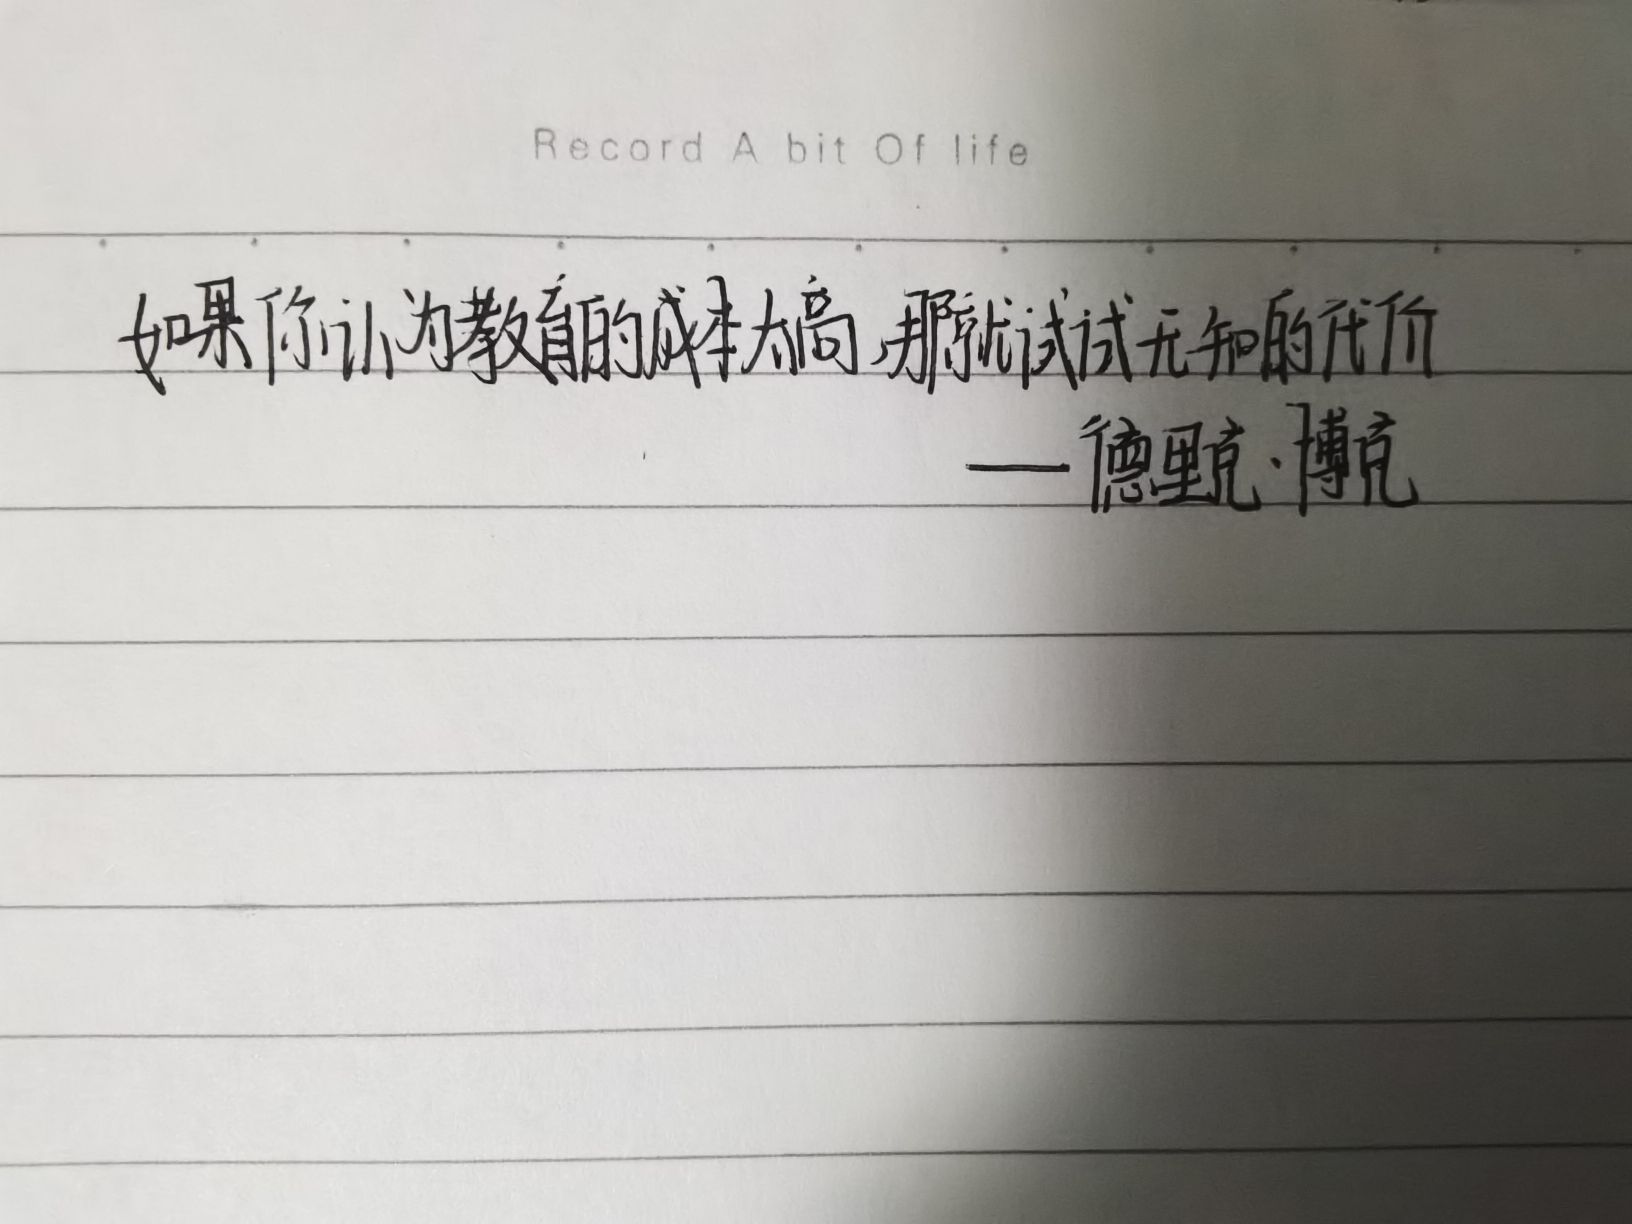 Record A bit Of life
如果你认为教育的成本太高,那就试试无知的代价
——德里克·博克